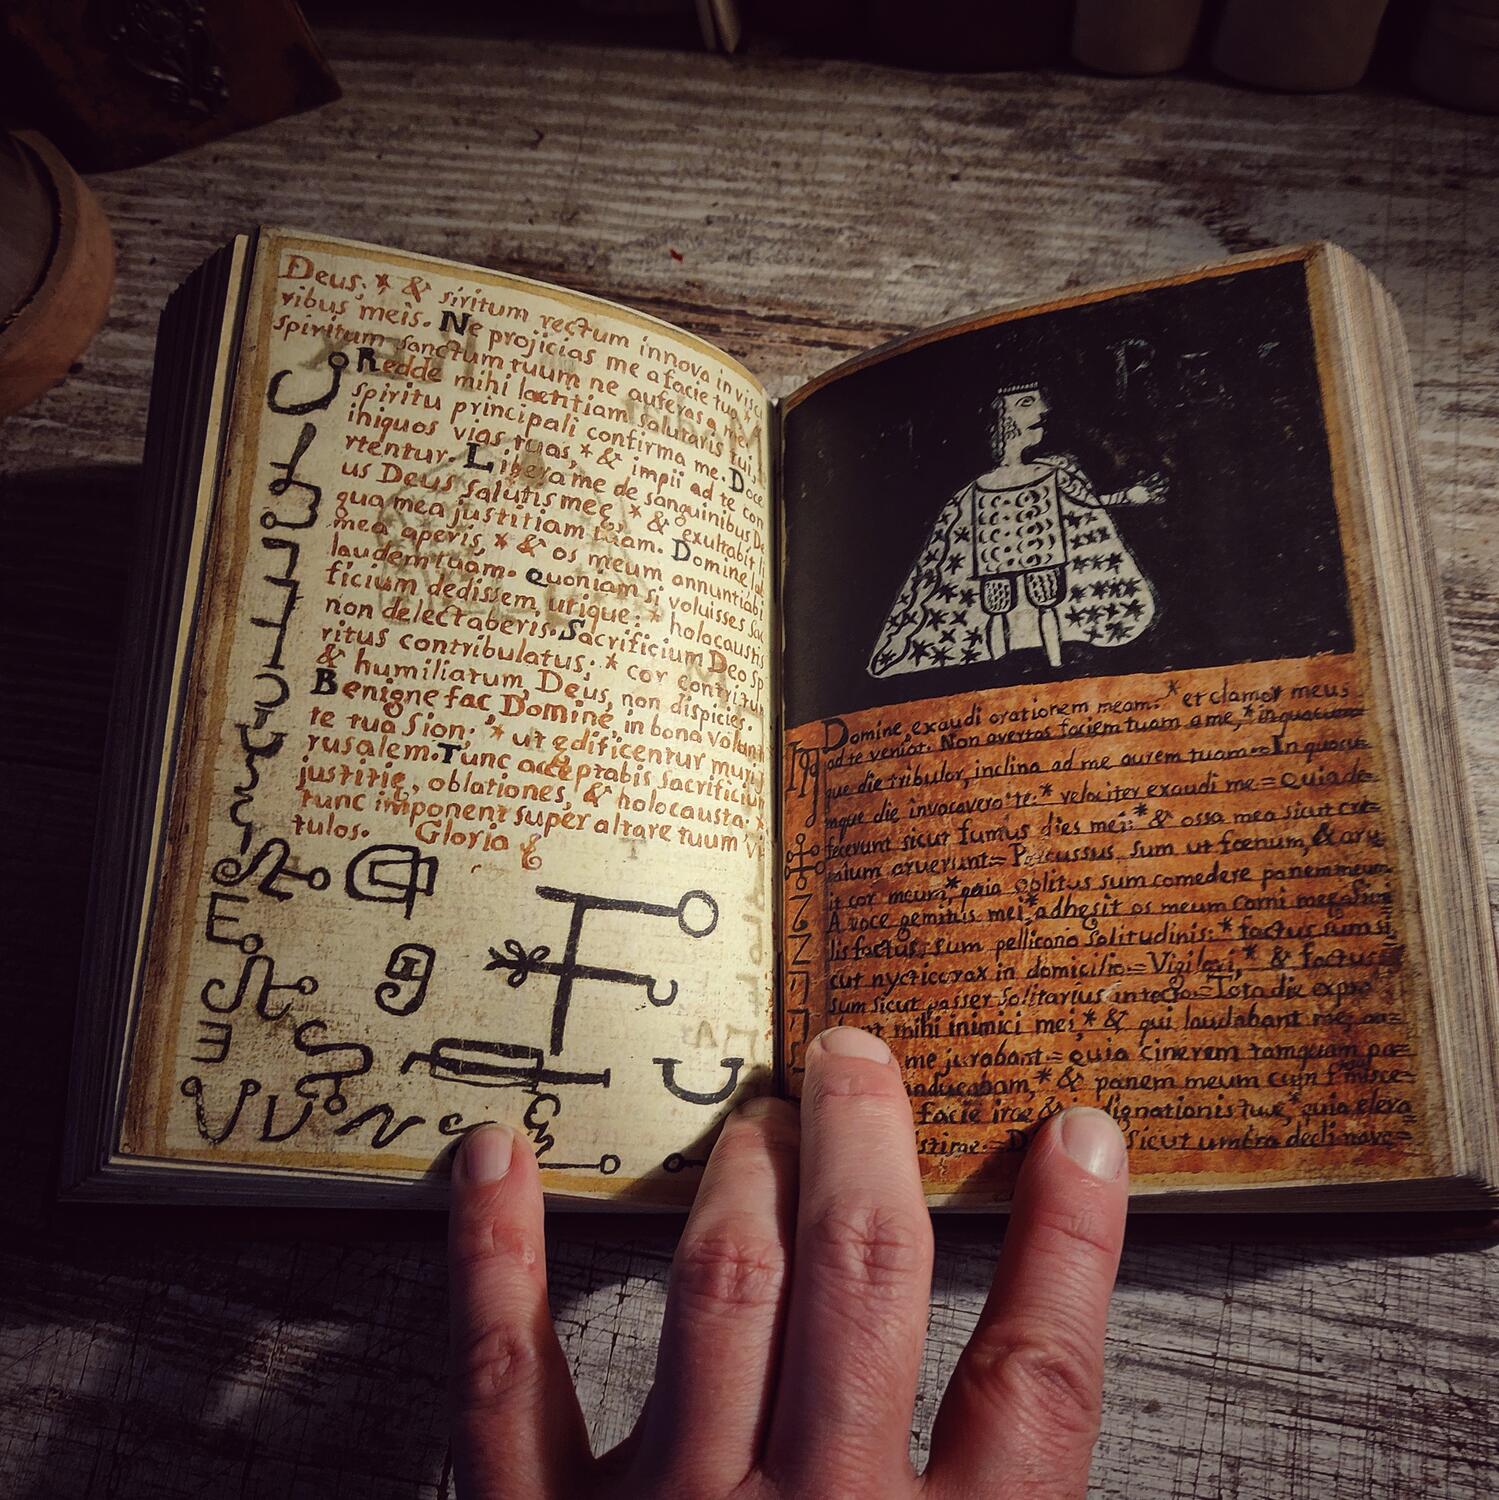 Deus. * & siritum rectum innova in visce
ribus meis. Ne projicias me a facie tua *
spiritum sanctum tuum ne auferas a me
Redde mihi laetitiam salutaris tui,
spiritu principali confirma me. Doce
iniquos vias tuas, * & impii ad te con
rtentur. Libera me de sanguinibus De
us Deus salutis meę, * & exultabit li
gua mea justitiam tuam. Domine lab
mea aperis, * & os meum annuntiabi
laudem tuam. Quoniam si voluisses sac
ficium dedissem, utique: * holocaustis
non delectaberis. Sacrificium Deo sp
ritus contribulatus: * cor contritum
& humiliatum, Deus, non dispicies.
Benigne fac Domine, in bona volunt
te tua Sion: * ut edificentur muri J
rusalem. Tunc acceptabis Sacrificium
justitię, oblationes, & holocausta: *
tunc imponent super altare tuum vi
tulos. Gloria
Domine, exaudi orationem meam: * et clamor meus
ad te veniat. Non avertas faciem tuam a me, * in quacum
que die tribulor, inclina ad me aurem tuam = In quacu=
mque die invocavero te: * velociter exaudi me = Quia de=
fecerunt sicut fumus dies mei: * & ossa mea sicut cre=
mium aruerunt = Percussus sum ut foenum, & aru
it cor meum, * quia oblitus sum comedere panem meum
A voce gemitus mei, * adhesit os meum carni
lis factus sum pellicano solitudinis: * factus sum si
cut nycticorax in domicilio = Vigilavi, * & factus
sum sicut passer solitarius in tecto = Tota die expro
mihi inimici mei, * & qui laudabant me,
me jurabant = Quia cinerem tamquam pa=
* & panem meum cum f misce=
facie irae & dignationis tuae, * quia eleva
sicut umbra declinave=